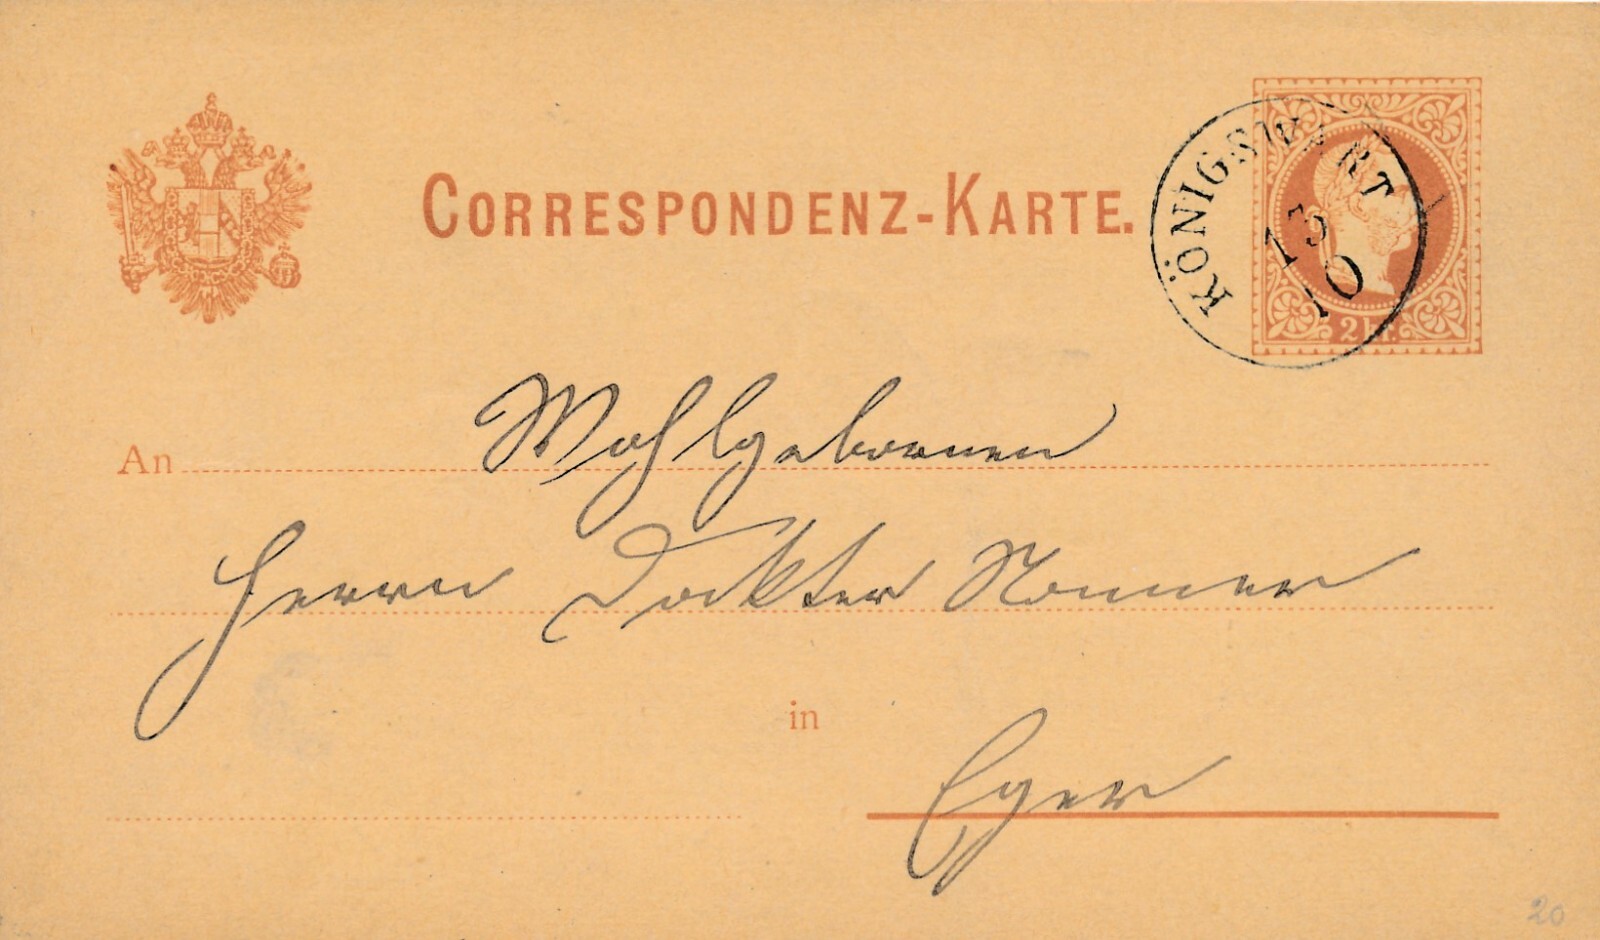 CORRESPONDENZ-KARTE.
KÖNIGSWART
13
10
2 kr.
An Wohlgebornen
Herrn Doktor
in Eger
20